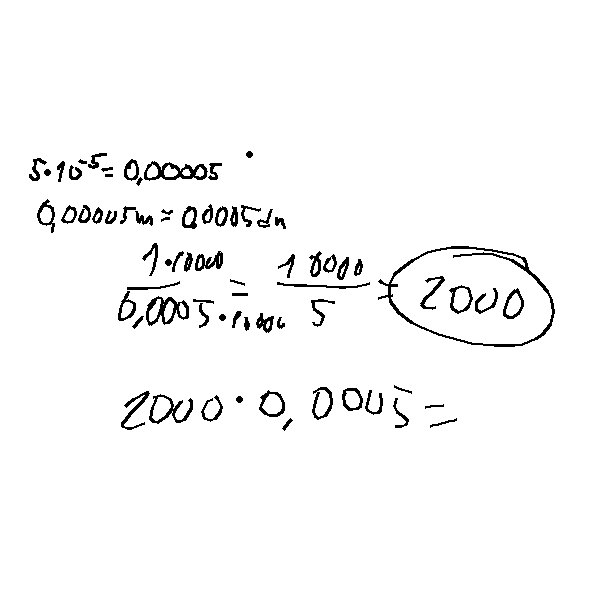 5·10⁻⁵=0,00005
0,00005m=0,0005dm
1·10000/0,0005·10000 = 10000/5 = 2000
2000·0,0005=